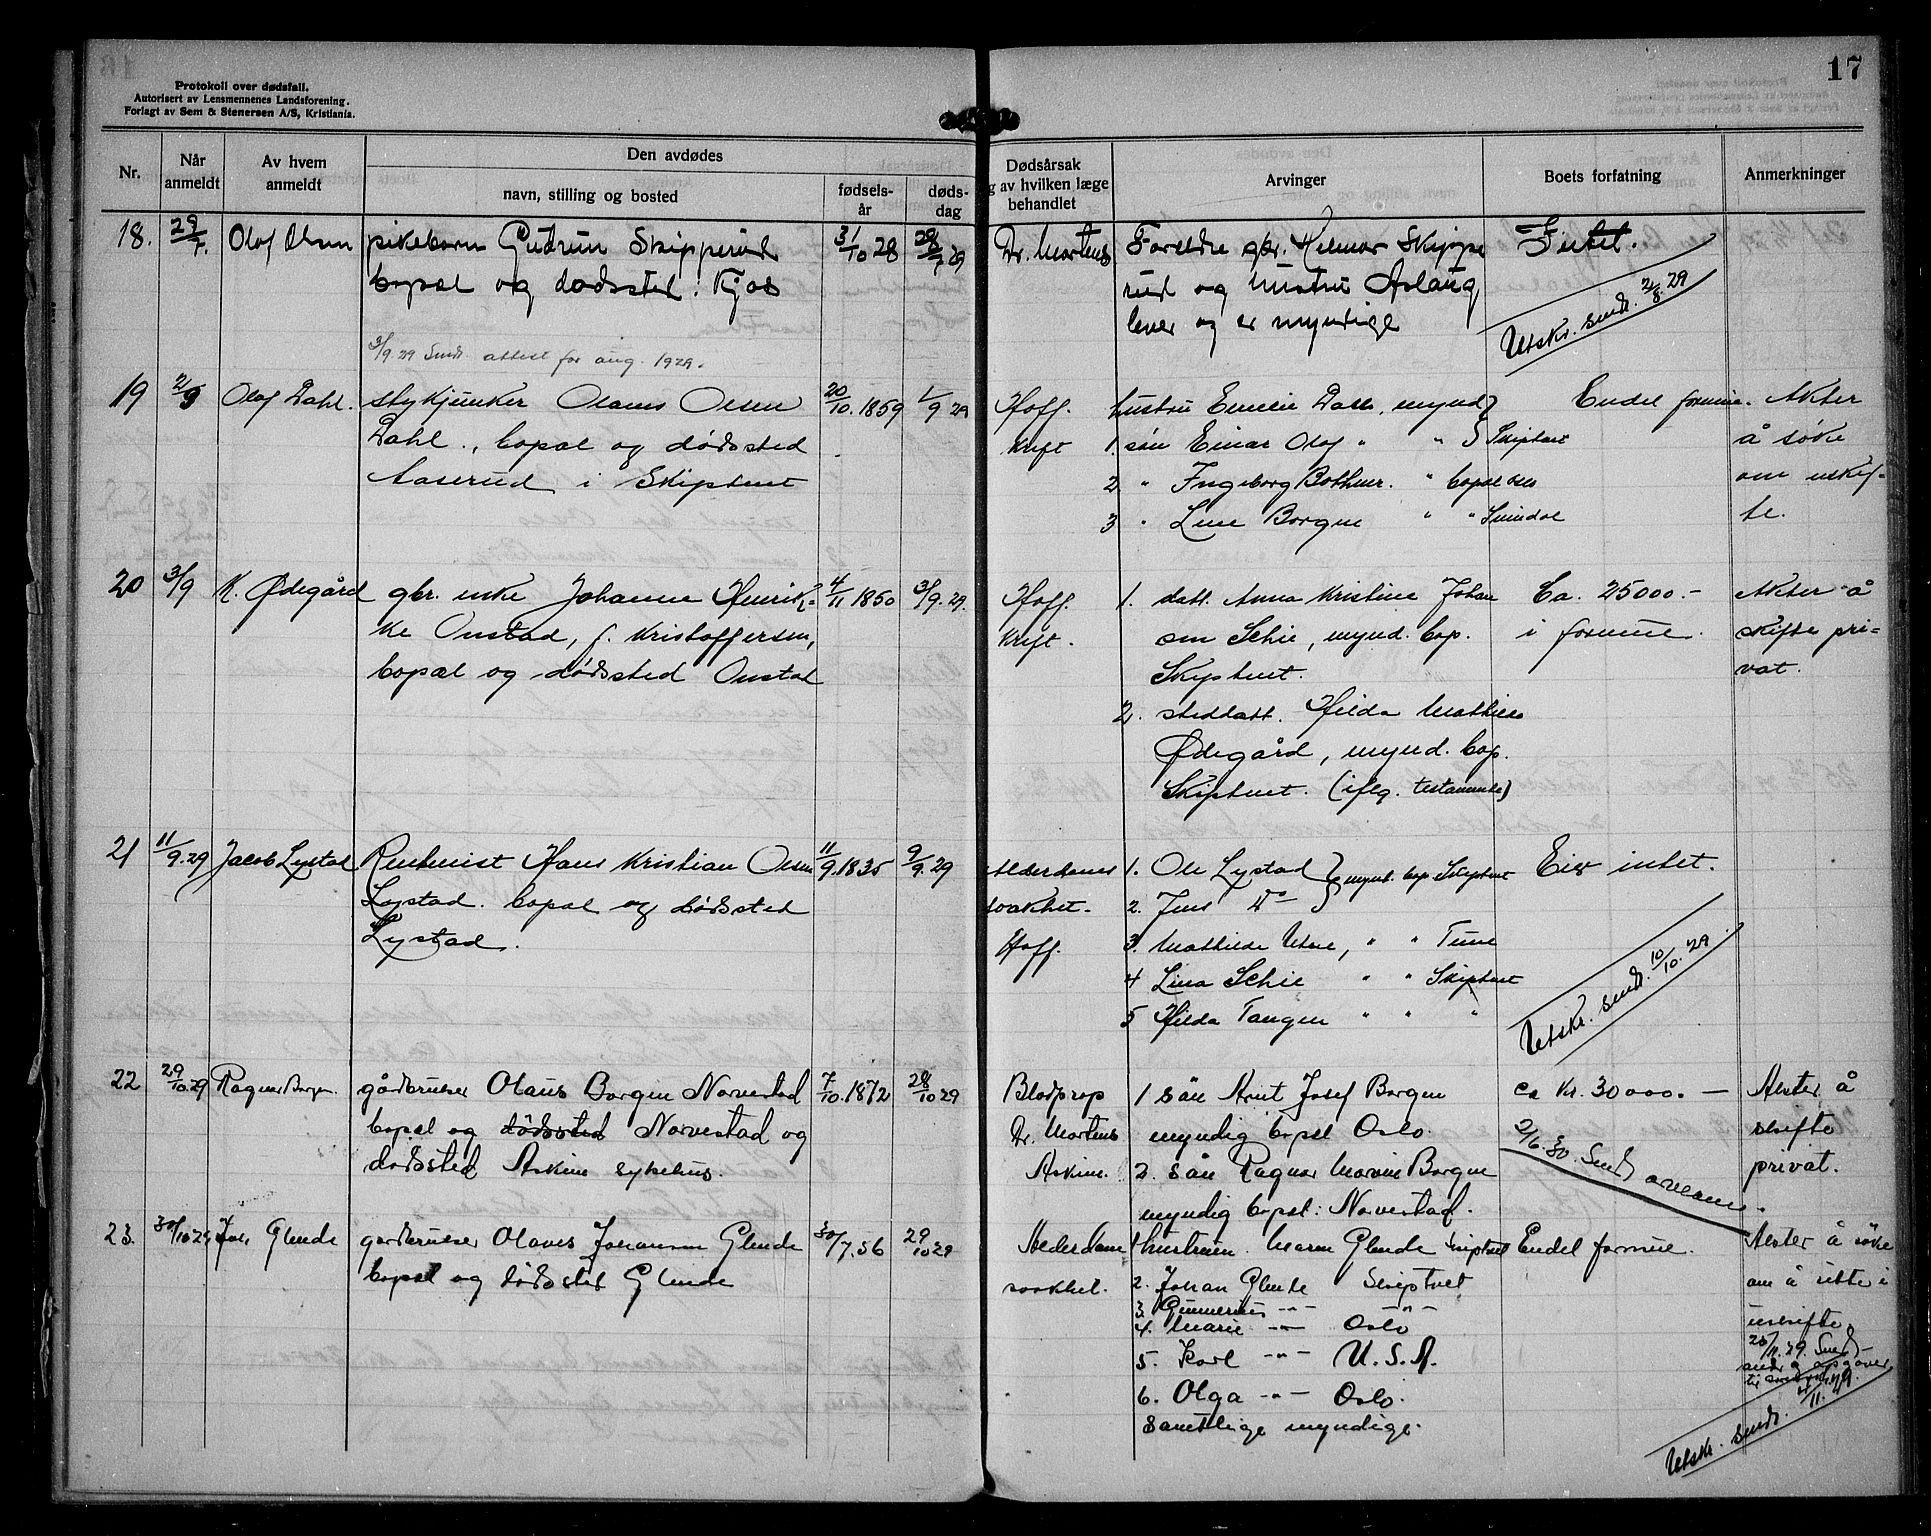 17
Protokoll over dødsfall.
Autorisert av Lensmennenes Landsforening.
Forlagt av Sem & Stenersen A/S, Kristiania.
Nr.
Når anmeldt
Av hvem anmeldt
Den avdødes
navn, stilling og bosted
fødsels-år
døds-dag
Dødsårsak
g av hvilken læge
behandlet
Arvinger
Boets forfatning
Anmerkninger
18. 29/7. Olof Olsen
pikebarn Gudrun Skipperud
bopæl og dødssted: Kjos
31/10 28
28/7 29
Dr. Mortens
Foreldre gbr. Helmar Skippe
rud og hustru Aslaug,
lever og er myndige
Intet.
Utskr. sendt. 2/8. 29
3/9 29 Sendt attest for aug. 1929.
19 2/9 Olof Dahl.
stykjunker Olaus Olsen
Dahl., bopæl og dødssted
Aaserud i Skiptvet
20/10. 1859
1/9 29
Hoff.
Kreft
hustru Emelie Dahl, mynd
1. søn Einar Olof " " Skiptvet
2 " Ingeborg Bothner. " bopæl
3 " Line Borgen " "
Endel formue.
Akter
å søke
om uskif-
te.
20 3/9 K. Ødegård
gbr. enke Johanne Henrik-
ke Onstad, f. Kristoffersen,
bopæl og dødssted Onstad
4/11 1850
3/9. 29.
Hoff.
Kreft.
1. datt. Anna Kristine Johan
sen Schie, mynd. bop.
Skiptvet.
2. steddatt. Hilda Mathise
Ødegård, mynd. bop.
Skiptvet. (iflg. testamente)
Ca. 25000.-
i formue.
Akter å
skifte pri-
vat.
21 11/9.29 Jacob Lystad
Rentenist Hans Kristian Olsen
Lystad. bopæl og dødssted
Lystad.
11/9.1835
9/9.29
Alderdoms
svakhet.
Hoff.
1. Ole Lystad } mynd. bop Skiptvet
2. Jens Do
3. Mathilde Utne, " " Tune
4 Lina Schie " " Skiptvet
5 Hilda Tangen " " "
Eier intet.
Utskr. sendt. 10/10. 29
22 29/10.29 Ragnar Borgen.
gårdbruker Olaus Borgen Norvestad
bopæl og dødssted Norvestad og
dødssted Askim sykehus.
7/10.1872
28/10 29
Blodprop
Dr. Mortens
Askim.
1 sön Arnt Josef Borgen
myndig bopæl Oslo.
2. sön Ragnar Marine Borgen
myndig bopæl: Norvestad.
ca Kr. 30000.—
2/6.30. Sendt
Akter å
skifte
privat.
23. 30/10 29 Joh. Glende
gårdbruker Olaves Johansen Glende
bopæl og dødssted Glende
30/7.56
29/10 29
Alderdom
svakhet.
1 hustruen. Maren Glende Skiptvet
2. Johan Glende Skiptvet
3. Gunnerius -"- -"-
4. Marie -"- Oslo
5. Karl -"- U.S.A.
6. Olga -"- Oslo.
Samtlige myndige.
Endel formue.
Akter å söke
om å sitte i
uskifte.
20/11.29. Sendt
Utskr. sendt.